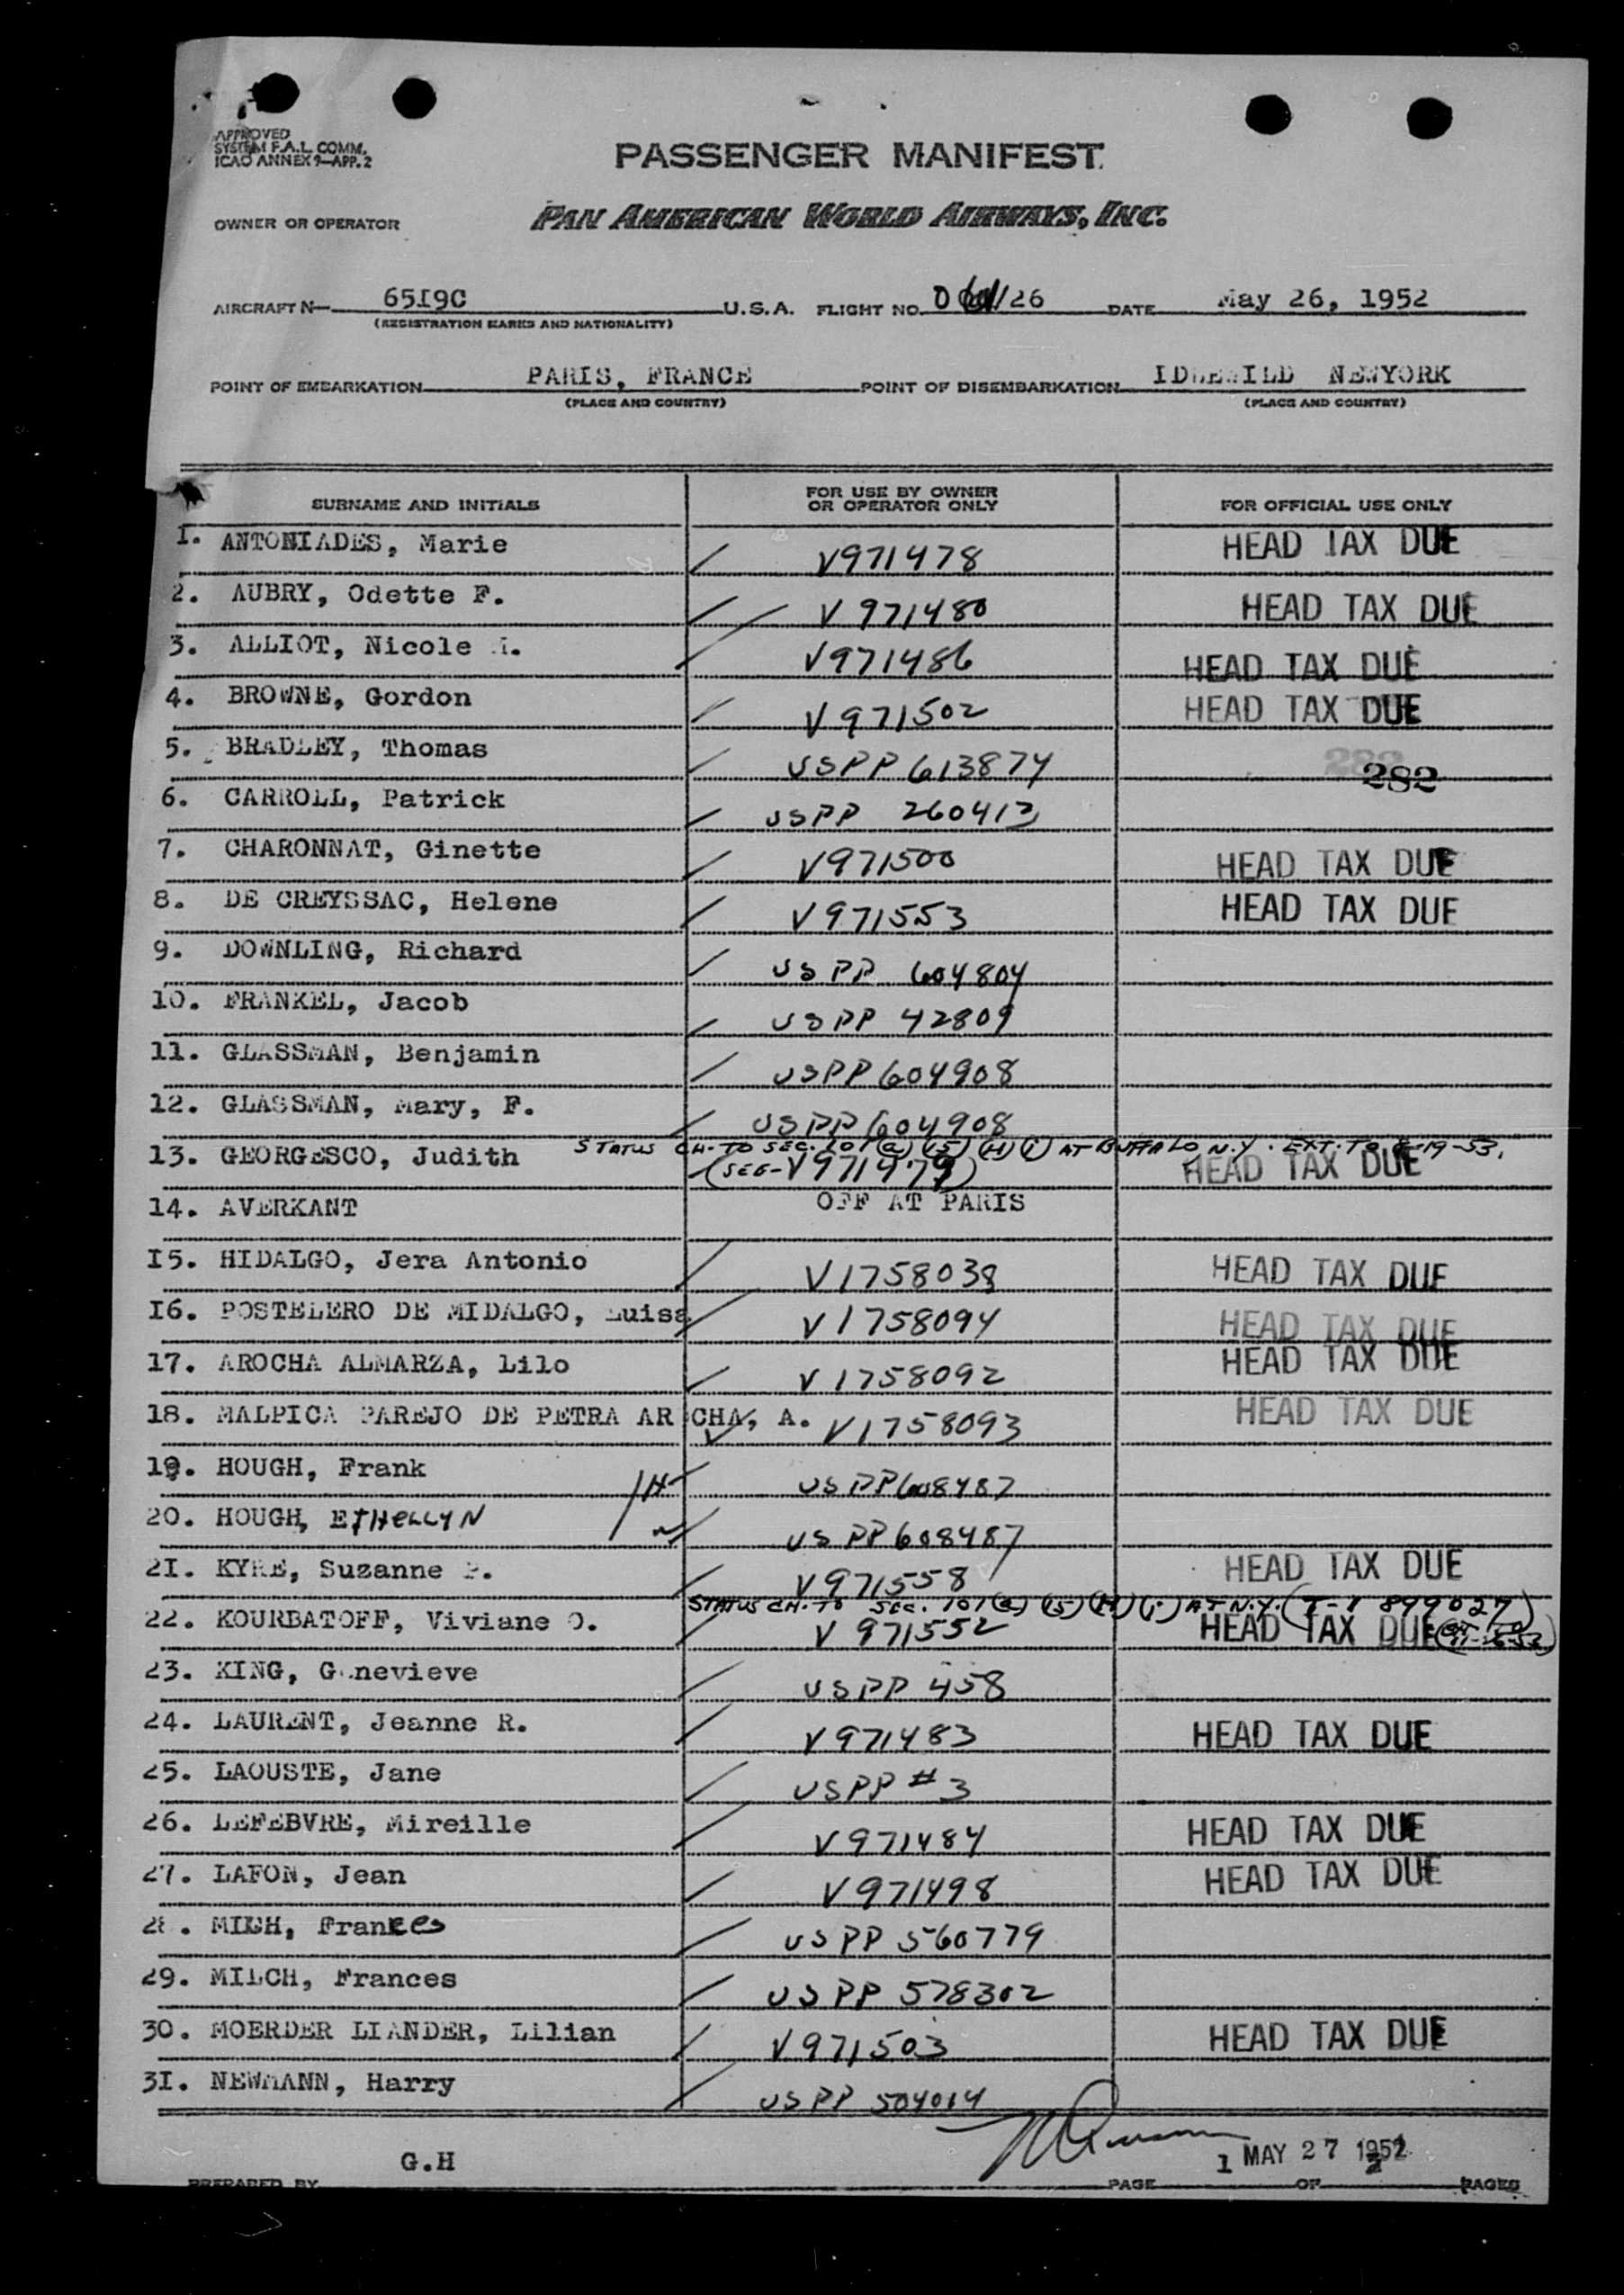 APPROVED
SYSTEM F.A.L. COMM.
ICAO ANNEX 9—APP. 2
PASSENGER MANIFEST
OWNER OR OPERATOR PAN AMERICAN WORLD AIRWAYS, INC.
AIRCRAFT N— 65I9C U.S.A. FLIGHT NO. /26 DATE May 26, 1952
(REGISTRATION MARKS AND NATIONALITY)
POINT OF EMBARKATION PARIS, FRANCE POINT OF DISEMBARKATION IDLEWILD NEWYORK
(PLACE AND COUNTRY) (PLACE AND COUNTRY)
SURNAME AND INITIALS FOR USE BY OWNER OR OPERATOR ONLY FOR OFFICIAL USE ONLY
I. ANTONIADES, Marie V971478 HEAD TAX DUE
2. AUBRY, Odette F. V 971480 HEAD TAX DUE
3. ALLIOT, Nicole V971486 HEAD TAX DUE
4. BROWNE, Gordon V 971502 HEAD TAX DUE
5. BRADLEY, Thomas USPP 613874 282 282
6. CARROLL, Patrick USPP
7. CHARONNAT, Ginette V971500 HEAD TAX DUE
8. DE CREYSSAC, Helene V971553 HEAD TAX DUE
9. DOWNLING, Richard US PP 604804
10. FRANKEL, Jacob USPP 42809
11. GLASSMAN, Benjamin USPP 604908
12. GLASSMAN, Mary, F. USPP 604908
STATUS CH. TO SEC. 101 (a) (15) (H) (i) AT BUFFALO N.Y. EXT. TO -19-53.
13. GEORGESCO, Judith (SEG-V971479) HEAD TAX DUE
14. AVERKANT OFF AT PARIS
I5. HIDALGO, Jera Antonio V1758038 HEAD TAX DUE
I6. POSTELERO DE MIDALGO, Luisa V1758094 HEAD TAX DUE
17. AROCHA ALMARZA, Lilo V 1758092 HEAD TAX DUE
18. MALPICA PAREJO DE PETRA AROCHA, A. V1758093 HEAD TAX DUE
19. HOUGH, Frank US PP608487
20. HOUGH, ETHELLYN US PP 608487
2I. KYRE, Suzanne V971558 HEAD TAX DUE
STATUS CH. TO SEC. 101 (a) (15) (H) (i) AT N.Y. (T-1 899027)
22. KOURBATOFF, Viviane O. V 971552 HEAD TAX DUE
23. KING, Genevieve USPP 458
24. LAURENT, Jeanne R. V971483 HEAD TAX DUE
25. LAOUSTE, Jane USPP # 3
26. LEFEBVRE, Mireille V971484 HEAD TAX DUE
27. LAFON, Jean V971498 HEAD TAX DUE
28. Frances US PP 560779
29. MILCH, Frances US PP 578302
30. MOERDER LIANDER, Lilian V971503 HEAD TAX DUE
3I. NEWMANN, Harry US PP 504014
G.H 1 MAY 27 1952
PREPARED BY PAGE OF PAGES